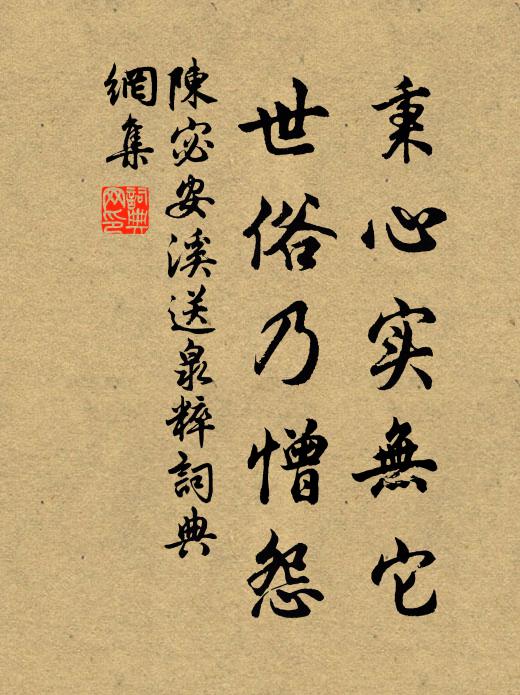 秉心实無它
世俗乃憎怨
陳宓安溪送泉粹詞典
網集
詞典網印